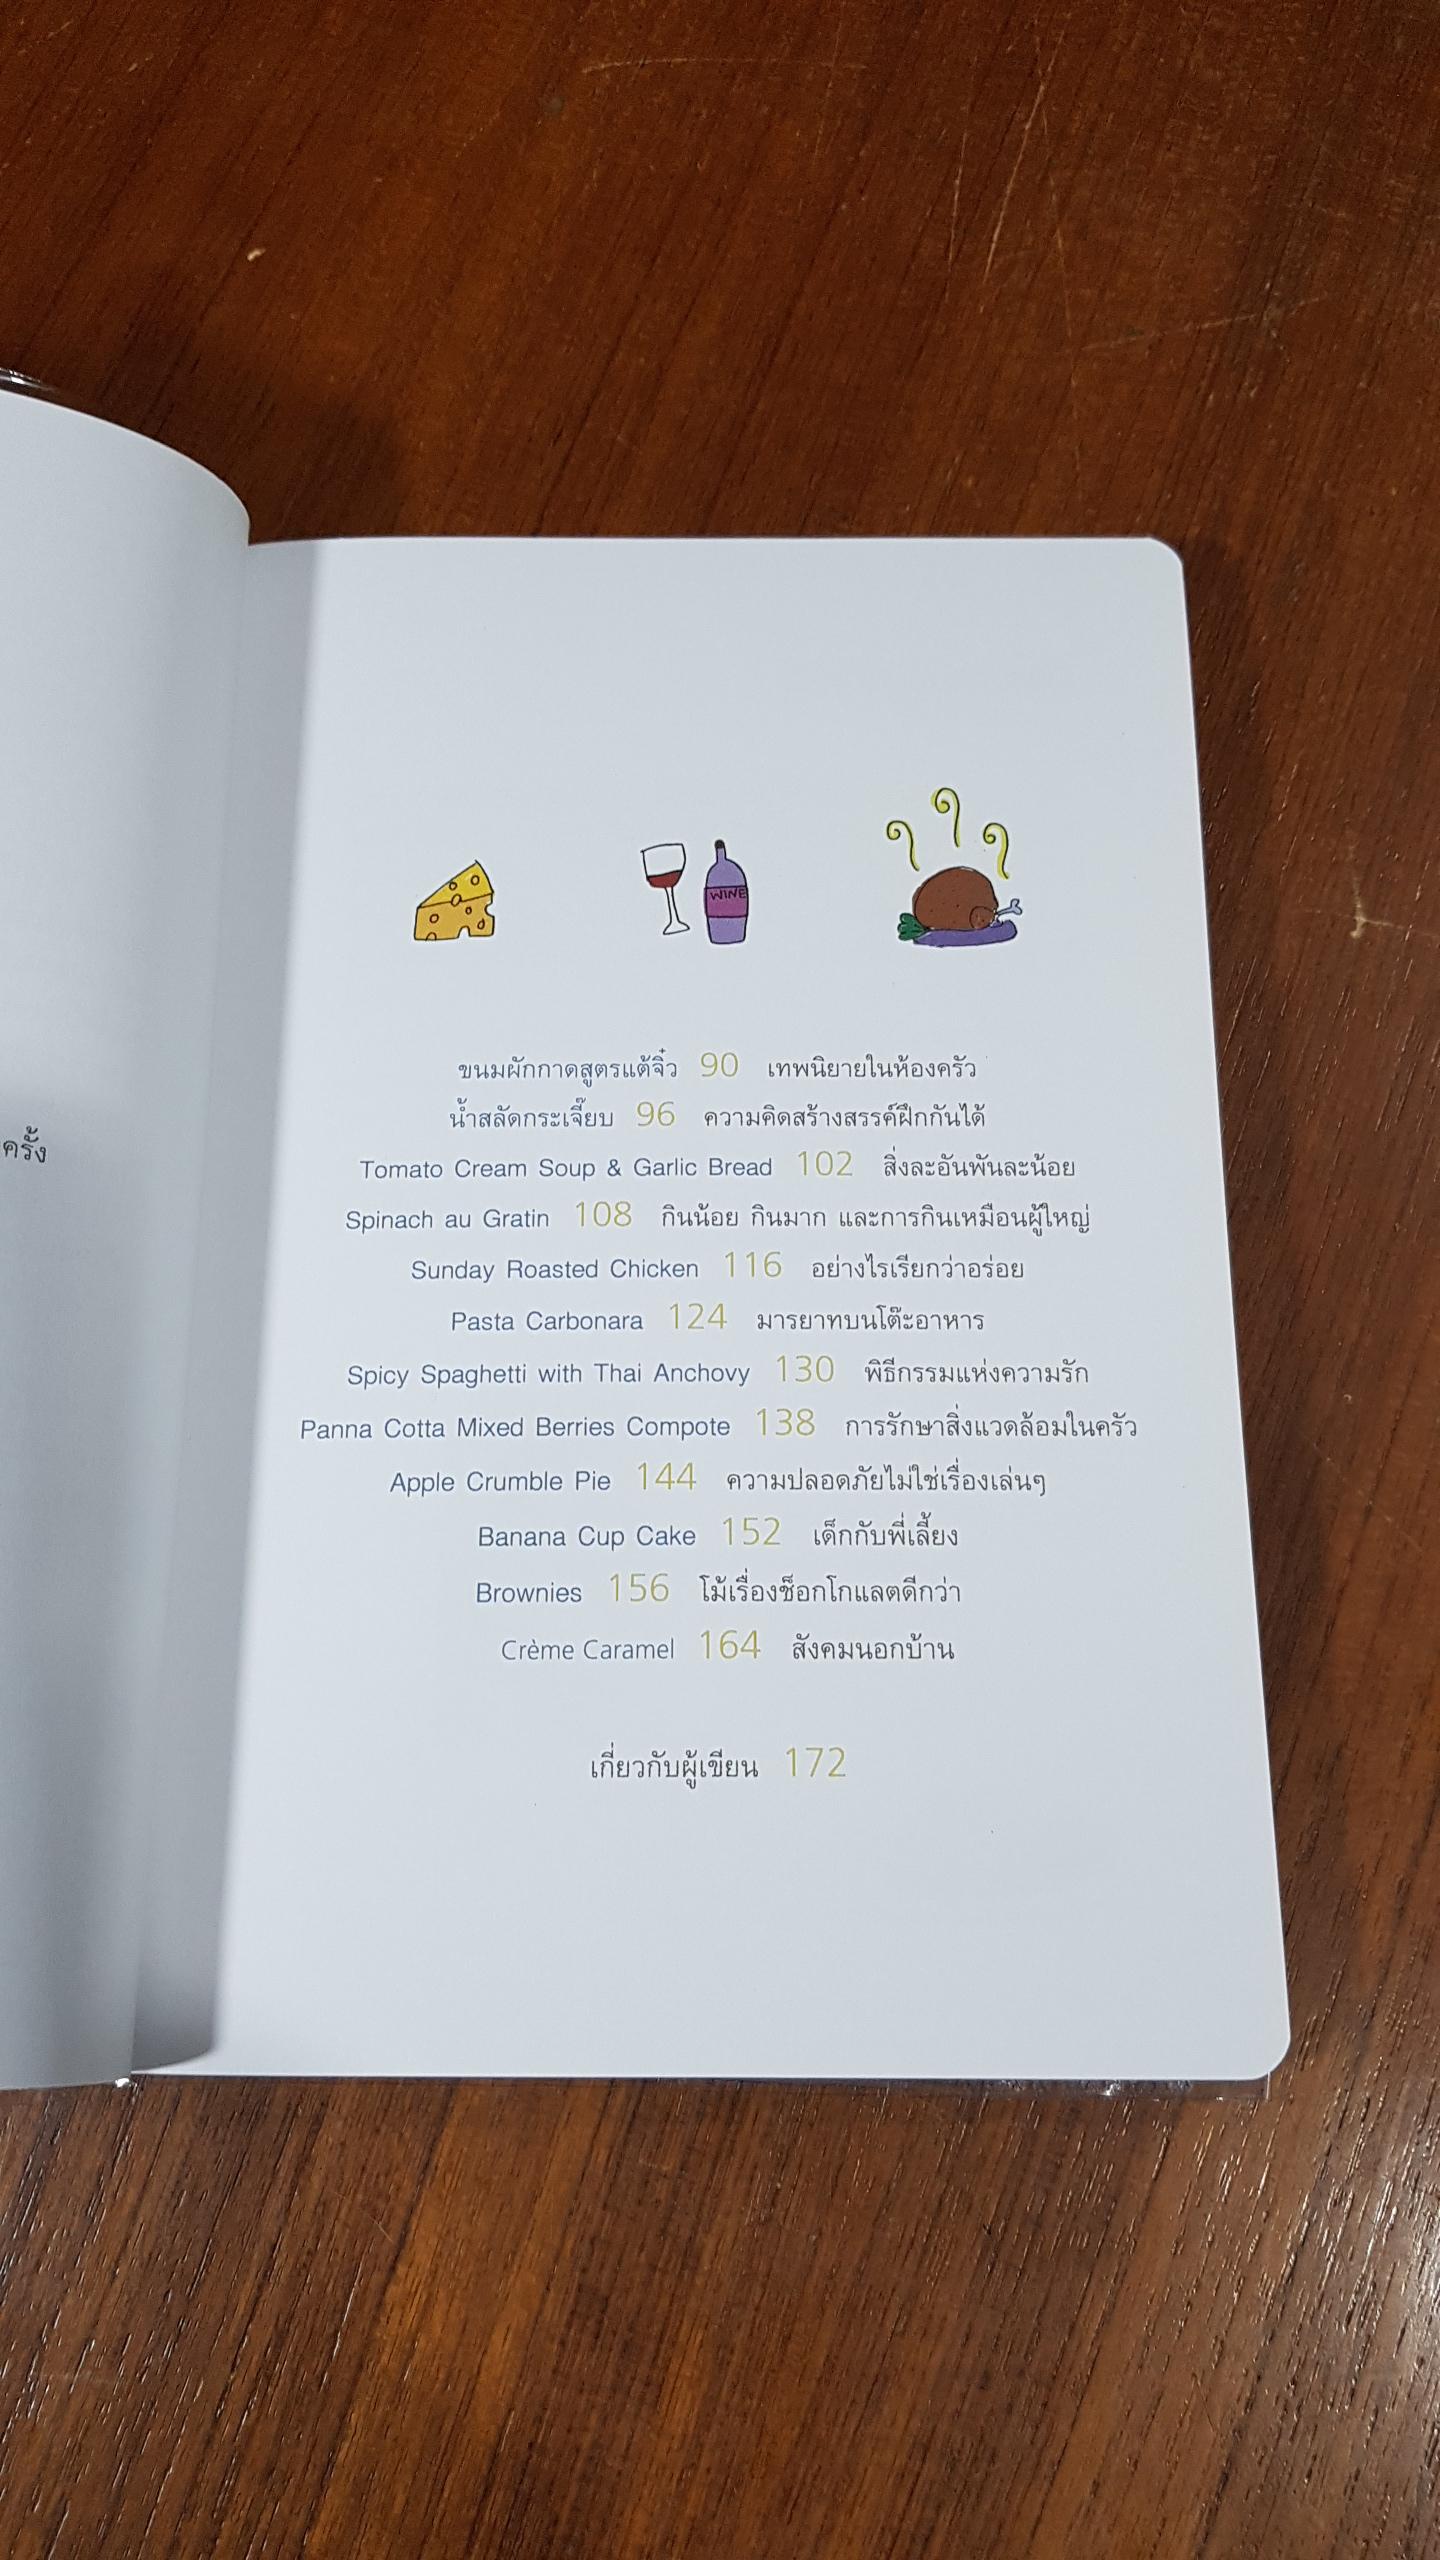 ครั้ง
WINE
ขนมผักกาดสูตรแต้จิ๋ว 90 เทพนิยายในห้องครัว
น้ำสลัดกระเจี๊ยบ 96 ความคิดสร้างสรรค์ฝึกกันได้
Tomato Cream Soup & Garlic Bread 102 สิ่งละอันพันละน้อย
Spinach au Gratin 108 กินน้อย กินมาก และการกินเหมือนผู้ใหญ่
Sunday Roasted Chicken 116 อย่างไรเรียกว่าอร่อย
Pasta Carbonara 124 มารยาทบนโต๊ะอาหาร
Spicy Spaghetti with Thai Anchovy 130 พิธีกรรมแห่งความรัก
Panna Cotta Mixed Berries Compote 138 การรักษาสิ่งแวดล้อมในครัว
Apple Crumble Pie 144 ความปลอดภัยไม่ใช่เรื่องเล่นๆ
Banana Cup Cake 152 เด็กกับพี่เลี้ยง
Brownies 156 โม้เรื่องช็อกโกแลตดีกว่า
Crème Caramel 164 สังคมนอกบ้าน
เกี่ยวกับผู้เขียน 172